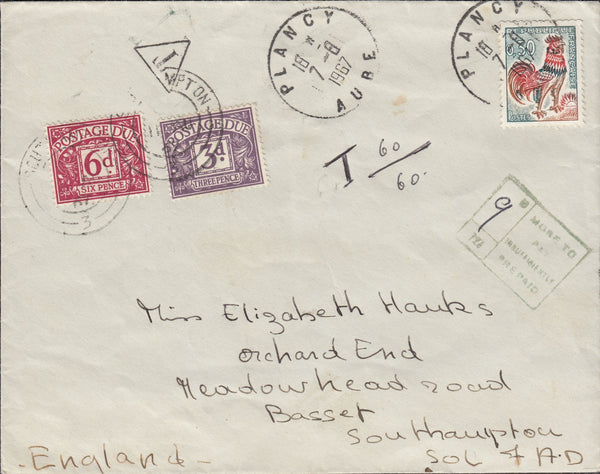 PLANCY
18 H
7-8
1967
AUBE
PLANCY
18 H
7-8
0,30
POSTES
T
MPTON
POSTAGE DUE
6d
SIX PENCE
POSTAGE DUE
3d
THREE PENCE
3
T 60/60.
9
MORE TO
PAY
INSUFFICIENTLY
PREPAID
Miss Elizabeth Hawks
Orchard End
Meadowhead road
Basset
Southampton
SOL 7 A.D
- England -